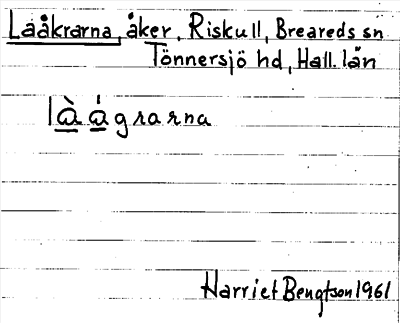 Laåkrarna, åker, Riskull, Breareds sn
Tönnersjö hd, Hall. län
là ág rarna
Harriet Bengtson 1961